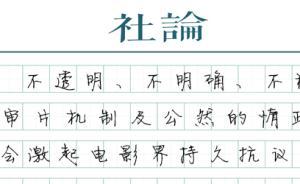 社論
不透明、不明确、不
审片机制及公然的情
会激起电影界持久抗议